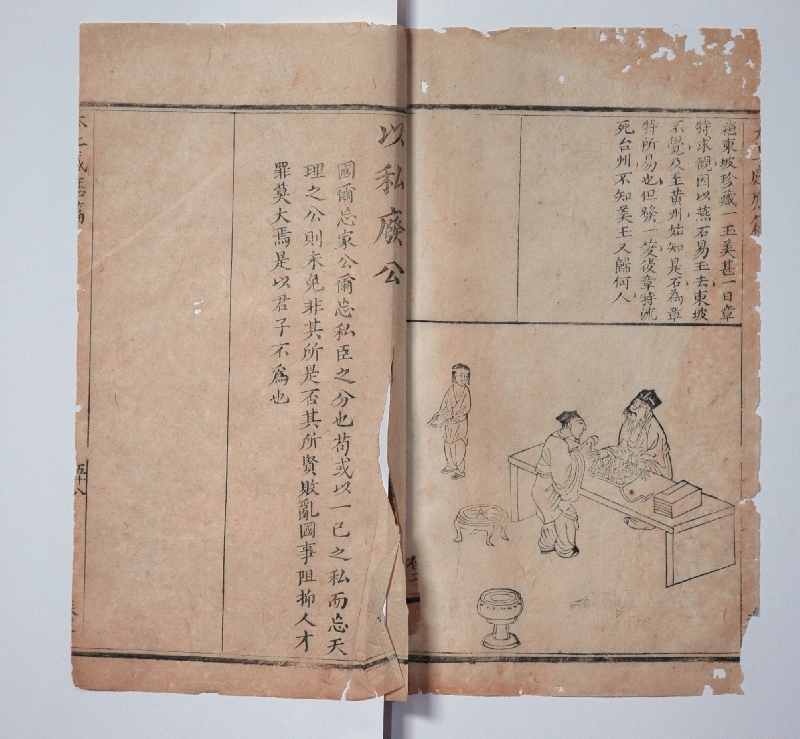 蘓東坡珍藏一玉美甚一日章
特求觀因以燕石易玉去東坡
不覺及至黃州始知是石為章
特所易也但發一笑後章特流
死台州不知美玉又歸何人
卷二
以私廢公
國爾忘家公爾忘私臣之分也苟或以一己之私而忘天
理之公則未免非其所是否其所賢敗亂國事阻抑人才
罪莫大焉是以君子不爲也
五十八